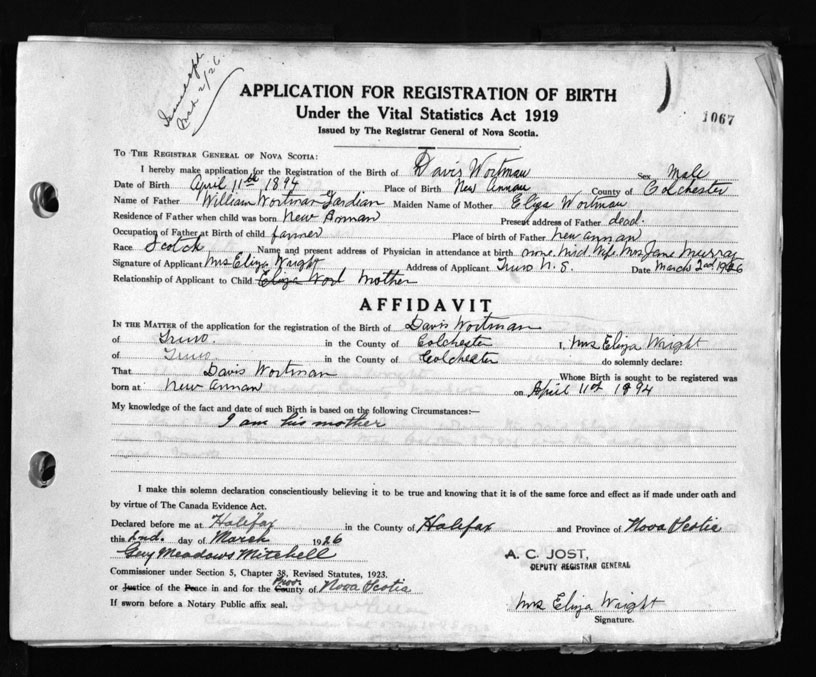 Mar 2/26
APPLICATION FOR REGISTRATION OF BIRTH
Under the Vital Statistics Act 1919
Issued by The Registrar General of Nova Scotia.
1067
TO THE REGISTRAR GENERAL OF NOVA SCOTIA:
I hereby make application for the Registration of the Birth of Davis Wortman Sex Male
Date of Birth April 11th 1894 Place of Birth New Annan County of Colchester
Name of Father William Wortman Maiden Name of Mother Eliza Wortman
Residence of Father when child was born New Annan Present address of Father dead.
Occupation of Father at Birth of child farmer Place of birth of Father New Annan
Race Scotch Name and present address of Physician in attendance at birth none. Mid. Wife. Mrs Jane Murray
Signature of Applicant Mrs Eliza Wright Address of Applicant Truro N. S. Date March 2nd 1926
Relationship of Applicant to Child Eliza Wort Mother
AFFIDAVIT
IN THE MATTER of the application for the registration of the Birth of Davis Wortman
of Truro. in the County of Colchester I, Mrs Eliza Wright
of Truro. in the County of Colchester do solemnly declare:
That Davis Wortman Whose Birth is sought to be registered was
born at New Annan on April 11th 1894
My knowledge of the fact and date of such Birth is based on the following Circumstances:—
I am his mother
I make this solemn declaration conscientiously believing it to be true and knowing that it is of the same force and effect as if made under oath and
by virtue of The Canada Evidence Act.
Declared before me at Halifax in the County of Halifax and Province of Nova Scotia
this 2nd. day of March 1926
Guy Meadows Mitchell
A. C. JOST,
DEPUTY REGISTRAR GENERAL
Commissioner under Section 5, Chapter 38, Revised Statutes, 1923.
or Justice of the Peace in and for the County of Prov. Nova Scotia
If sworn before a Notary Public affix seal.
Mrs Eliza Wright
Signature.